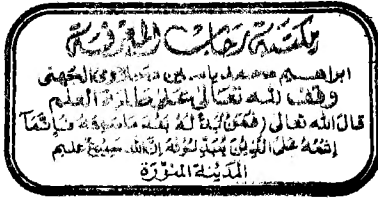 مكتبة رحاب المعرفة
ابراهيم محمد ياسين الجهني
وقف لله تعالى على طلبة العلم
قال الله تعالى (فمن بدله بعد ما سمعه فإنما
إثمه على الذين يبدلونه إن الله سميع عليم
المدينة المنورة